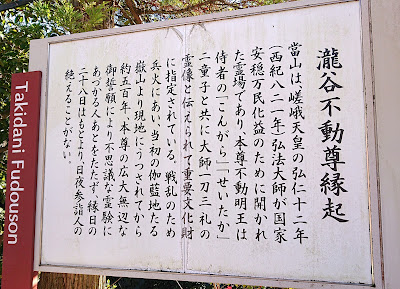 瀧谷不動尊縁起
當山は嵯峨天皇の弘仁十二年
（西紀八二一年）弘法大師が国家
安穏万民化益のために開かれ
た霊場であり、本尊不動明王は
侍者の「こんがら」「せいたか」
二童子と共に大師一刀三礼の
霊像と伝えられて重要文化財
に指定されている。戦乱のため
兵火にあい、当初の伽藍地たる
嶽山より現地にうつされてから
約五百年、本尊の広大無辺な
御誓願により不思議な霊験に
あづかる人あとをたたず、縁日の
二十八日はもとより、日夜参詣人の
絶えることがない。
Takidani Fudouson